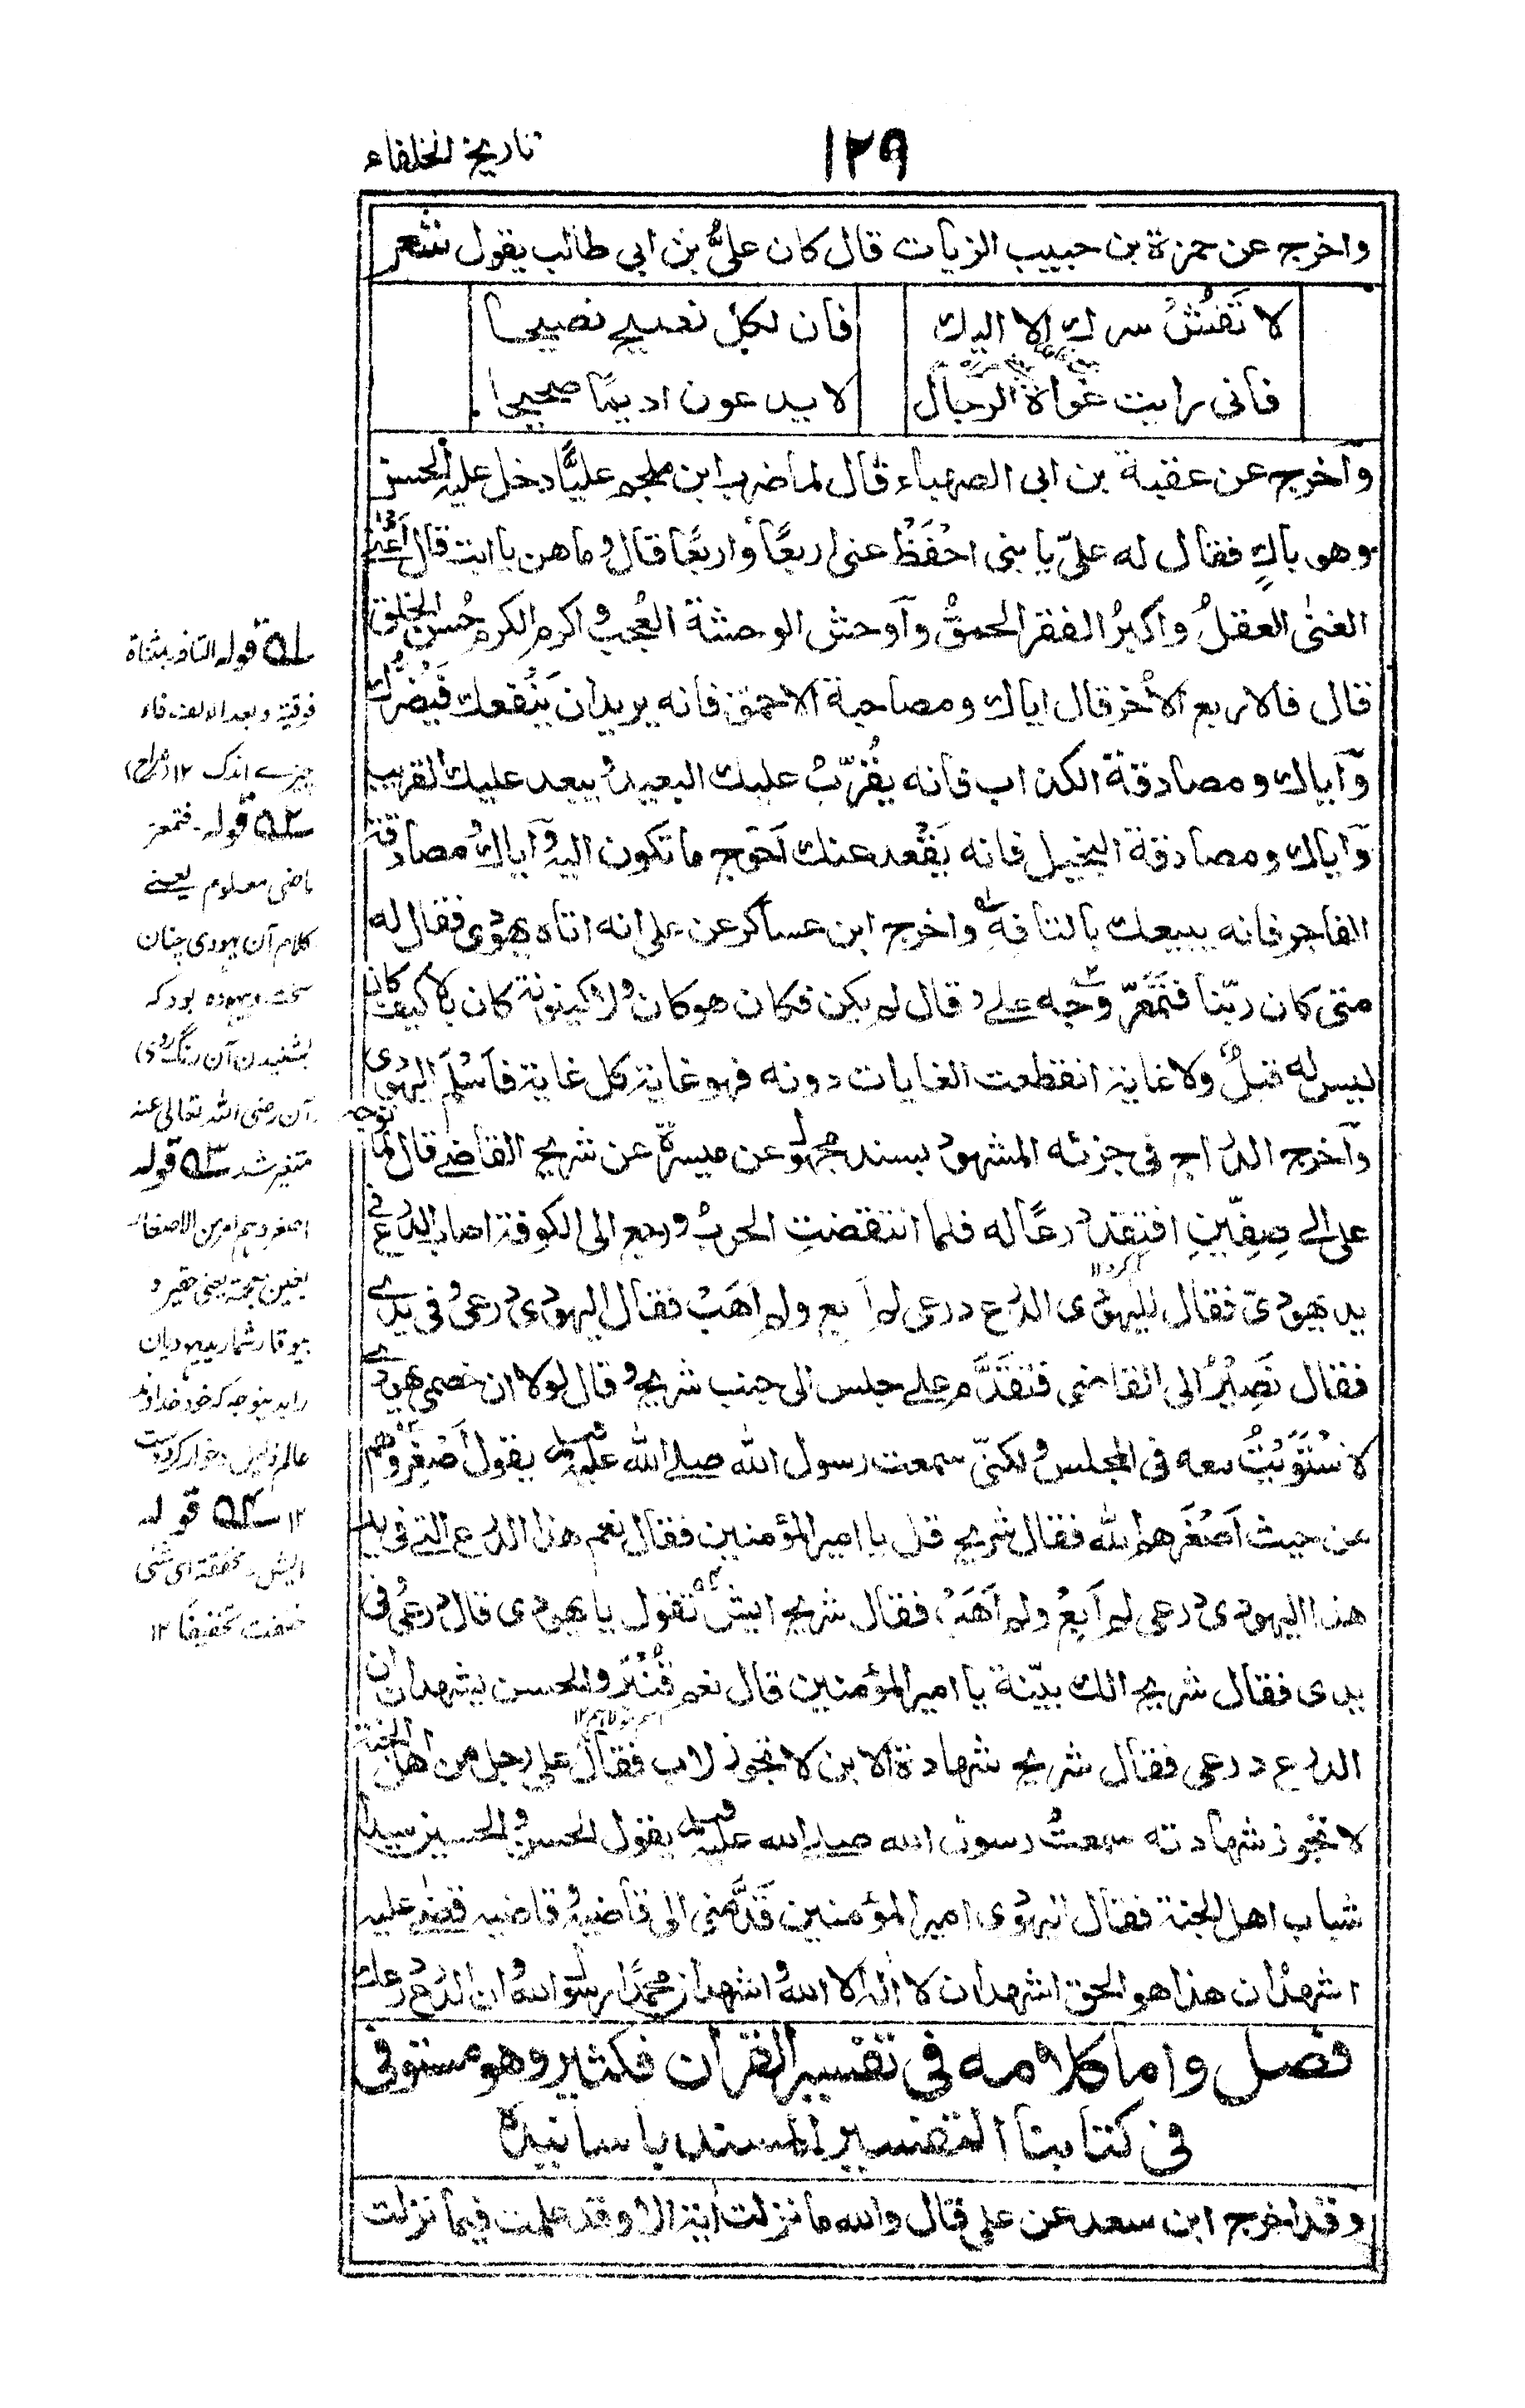 تاریخ الخلفاء
۱۲۹
واخرج عن حمزة بن حبیب الزیات قال کان علیُّ بن ابی طالب یقول شعر
لا تَفْشُ سرك الا الیك
فان لکل نصیح نصیحا
فانی رایت غواة الرجال
لا یدعون ادیمًا صحیحا
وآخرج عن عقبة بن ابی الصهباء قال لما ضرب ابن ملجم علیًّا دخل علیه الحسن
وهو باكٍ فقال له علیّ یا بنی احْفَظْ عنی اربعًا واربعًا قال وما هن یا ابت قال اَغْنَی
الغنٰی العقلُ واکبرُ الفقر الحمقُ وآوحش الوحشة العُجب واکرم الکرم حُسن الخلق
قال فالاربع الاُخر قال ایاك ومصاحبة الاحمق فانه یرید ان یَنْفعك فَیَضُرُّك
وّآیاك ومصادقة الکذاب فانه یُقَرِّبُ علیك البعید ویبعد علیك القریب
وّآیاك ومصادقة البخیل فانه یَقْعد عنك اَحْوج ما تکون الیه وآیاك ومصادقة
الفاجر فانه یبیعك بالتافه واخرج ابن عساکر عن علی انه اتاه یهودی فقال له
متی کان ربّنا فتَمَعَّرَ وجه علی وقال لم یکن فکان هو کان ولا کینونة کان بلا کیف کان
لیس له قبلٌ ولا غایة انقطعت الغایات دونه فهو غایة کل غایة فاَسْلَمَ الیهودی
وآخرج الدراج فی جزئه المشهور بسند مجهول عن میسرة عن شریح القاضی قال لما توجه
علی الی صِفِّینِ افتقد درعًا له فلما انقضتِ الحرب ورجع الی الکوفة اصاب الدرع فی
ید یهودیّ فقال للیهودی الدرع درعی لم ابع ولم اَهَبْ فقال الیهودی درعی وفی یدی
فقال نَصِیْرُ الی القاضی فتقدَّم علی جلس الی جنب شریح وقال لولا ان خصمی یهودی
لاسْتَوَیْتُ معه فی المجلس ولکنّی سمعت رسول الله صلی الله علیه وسلم یقول اَصْغِروهم
من حیث اَصْغَرهم الله فقال شریح قل یا امیر المؤمنین فقال نعم هذا الدرع التی فی ید
هذا الیهودی درعی لم اَبِعْ ولم اَهَبْ فقال شریح ایش تقول یا یهودی قال درعی وفی
یدی فقال شریح الك بیّنة یا امیر المؤمنین قال نعم قَنْبَرٌ والحسن یشهدان ان
الدرع درعی فقال شریح شهادة الابن لا تجوز للاب فقال علی رجل من اهل الجنة
لا تجوز شهادته سمعتُ رسول الله صلی الله علیه وسلم یقول الحسن والحسین سیدا
شباب اهل الجنة فقال الیهودی امیر المؤمنین قَدَّمَنی الی قاضیه وقاضیه قضٰی علیه
اشهد ان هذا هو الحق اشهد ان لا اله الا الله واشهد ان محمدًا رسول الله وان الدرع درعك
فصل واما کلامه فی تفسیر القرآن فکثیر وهو مستوفی
فی کتابنا التفسیر المسند باسانیده
وقد اخرج ابن سعد عن علی قال والله ما نزلت اٰیة الا وقد علمت فیما نزلت
۵۱ قوله التافه بمثناة
فوقیة وبعد الالف فاء
چیزے اندک ۱۲ (صراح)
۵۲ قوله فتمعر
ماضی معلوم یعنے
کلام آن یہودی چنان
سخت وبیہودہ بود کہ
بشنیدن آن رنگ (روی)
آن رضی اللہ تعالی عنہ
متغیر شد ۵۳ قوله
اصغروہم امر من الاصغار
بغین معجمۃ یعنی حقیر و
بیوقار شمارید یہودیان
را بدینوجہ کہ خود خداوند
عالم ذلیل وخوار کردہ است
۱۲ ۵۴ قوله
ایش مخففة ای شئی
خففت تخفیفًا ۱۲